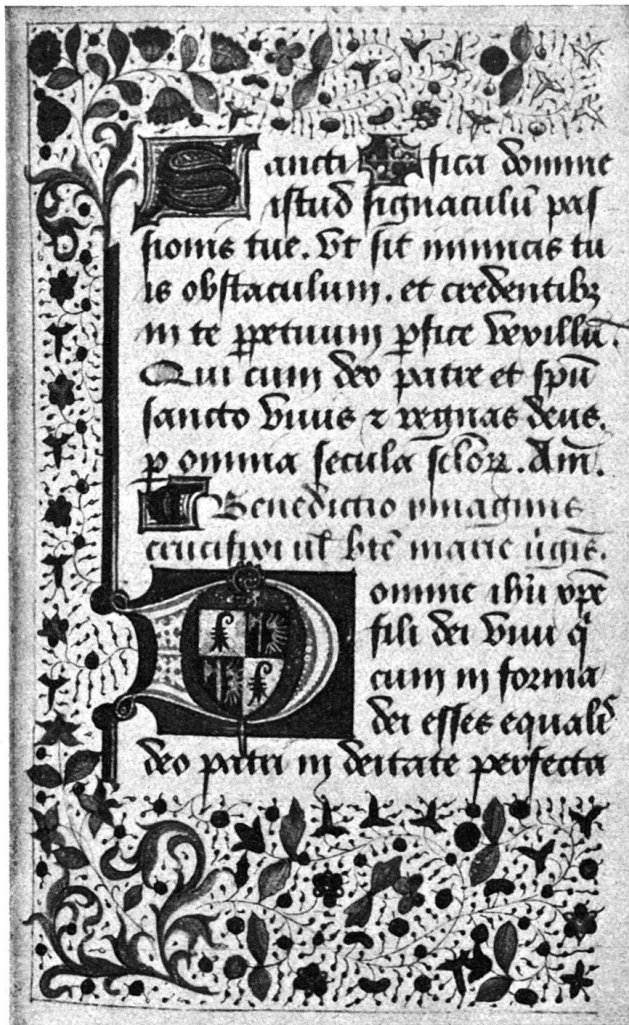 Sancti ✠ fica domine
istud signaculū pas
sionis tue. Vt sit inimicis tu
is obstaculum. et credentibꝫ
in te ꝑpetuum ꝑfice vexillū.
Qui cum deo patre et spū
sancto viuis ⁊ regnas deus.
ꝑ omnia secula sclorꝝ. Am̄.
Benedictio ymaginis
crucifixi ul̄ btē marie ūgīs.
Domine ihū xp̄e
fili dei viui q̄
cum in forma
dei esses equalis
deo patri in deitate perfecta